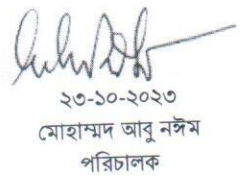 ২৩-১০-২০২৩
মোহাম্মদ আবু নঈম
পরিচালক